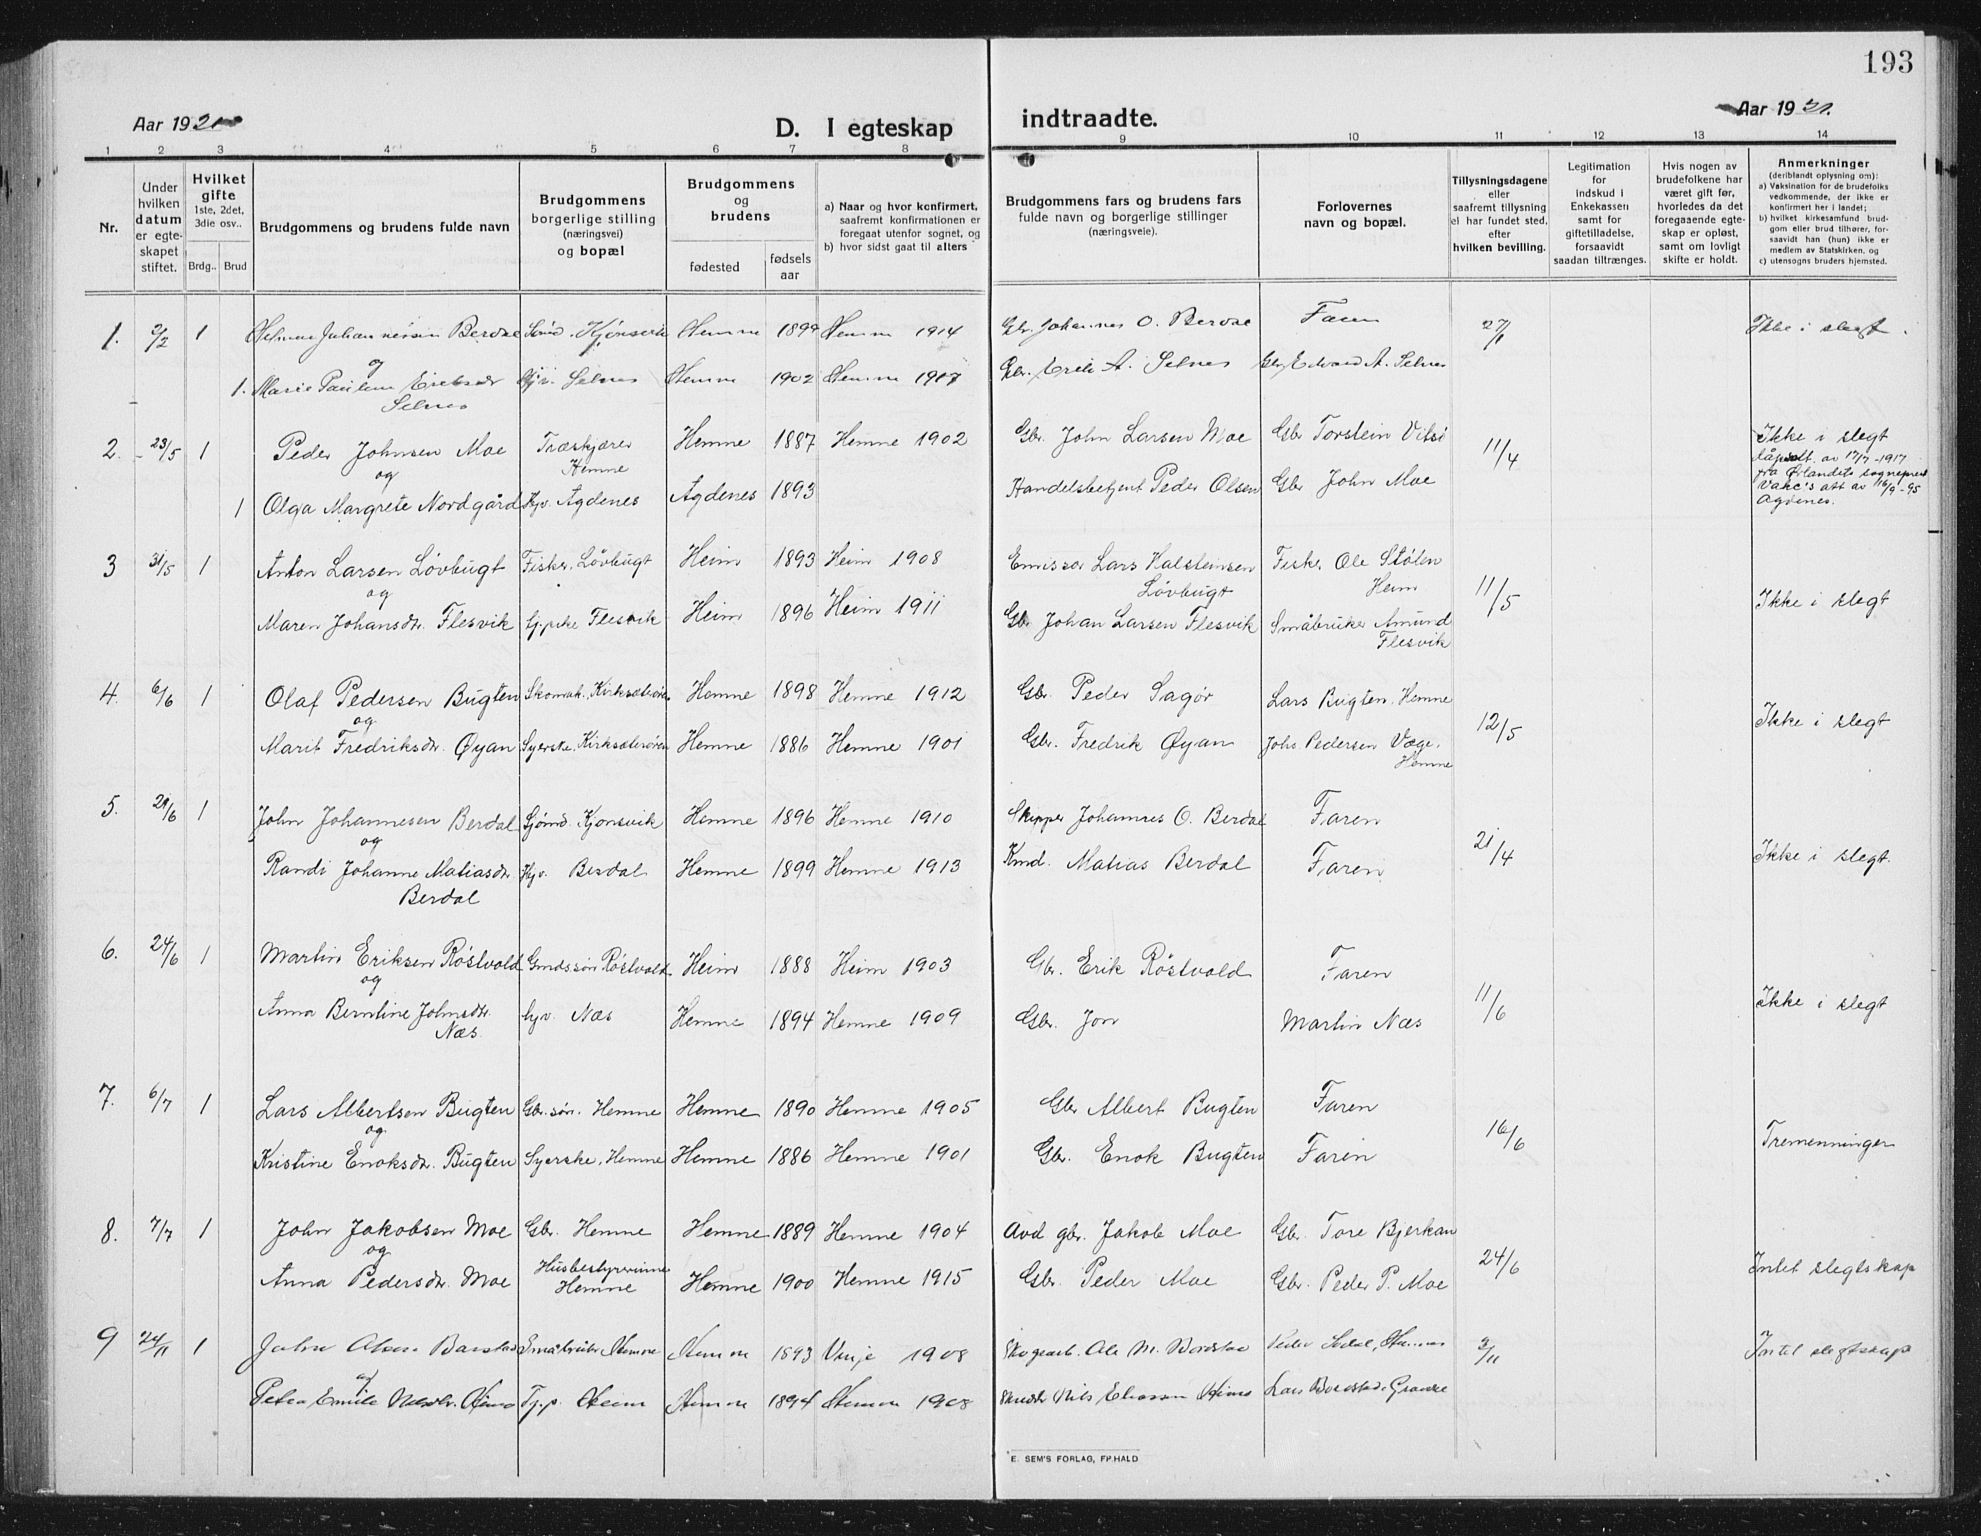 193
Aar 1921
D. I egteskap indtraadte.
Aar 1921.
1 2 3 4 5 6 7 8 9 10 11 12 13 14
Nr.
Under hvilken datum er egteskapet stiftet.
Hvilket gifte 1ste, 2det, 3die osv..
Brdg.. Brud
Brudgommens og brudens fulde navn
Brudgommens borgerlige stilling (næringsvei) og bopæl
Brudgommens og brudens
fødested
fødsels aar
a) Naar og hvor konfirmert, saafremt konfirmationen er foregaat utenfor sognet, og
b) hvor sidst gaat til alters
Brudgommens fars og brudens fars fulde navn og borgerlige stillinger (næringsveie).
Forlovernes navn og bopæl.
Tillysningsdagene eller saafremt tillysning ei har fundet sted, efter hvilken bevilling.
Legitimation for indskud i Enkekassen samt for giftetilladelse, forsaavidt saadan tiltrænges.
Hvis nogen av brudefolkene har været gift før, hvorledes da det foregaaende egteskap er opløst, samt om lovligt skifte er holdt.
Anmerkninger (deriblandt oplysning om):
a) Vaksination for de brudefolks vedkommende, der ikke er konfirmert her i landet;
b) hvilket kirkesamfund brudgom eller brud tilhører, forsaavidt han (hun) ikke er medlem av Statskirken, og
c) utensogns bruders hjemsted.
1. 2/2 1 Julian Berdal Hemne 1899 Hemne 1914 Gbr. Johannes O. Berdal Faren 27/1 Ikke i slegt.
og
1. Marie Pauline Eriksdr. Selnes Hemne 1902 Hemne 1917 Gbr. Erik A. Selnes Gbr. Edvard A. Selnes
Selnes
2. 23/5 1 Peder Johnsen Moe Træskjærer Hemne Hemne 1887 Hemne 1902 Gbr. John Larsen Moe Gbr. Torstein Vitsø 11/4 Ikke i slegt
og
1 Olga Margrete Nordgård Hjv. Agdenes Agdenes 1893 Handelsbetjent Peder Olsen Gbr. John Moe
Dåpsatt. av 17/7-1917
fra Ørlandets sogneprest
Vakc's att av 16/9-95
Agdenes.
3 31/5 1 Anton Larsen Løvbugt Fisker, Løvbugt Heim 1893 Heim 1908 Emissær Lars Halsteinsen Løvbugt Fisker Ole Stølen Heim 11/5 Ikke i slegt
og
Maren Johansdr. Flesvik Flesvik Heim 1896 Heim 1911 Gbr. Johan Larsen Flesvik Småbruker Amund Flesvik
4. 6/6 1 Olaf Pedersen Bugten Skomak. Kirksæterøren Hemne 1898 Hemne 1912 Gbr. Peder Sagør Lars Bugten. Hemne 12/5 Ikke i slegt
og
Marit Fredriksdr. Øyan Syerske. Kirksæterøren Hemne 1886 Hemne 1901 Gbr. Fredrik Øyan Johs. Pedersen Væge, Hemne
5. 21/6 1 John Johannesen Berdal Sjømd. Kjønsvik Hemne 1896 Hemne 1910 Skipper Johannes O. Berdal Faren 21/4 Ikke i slegt.
og
Randi Johanne Matiasdr. Berdal Hjv. Berdal Hemne 1899 Hemne 1913 Kmd. Matias Berdal Faren
6. 24/6 1 Martin Eriksen Røstvold Gmdssøn Røstvold Heim 1888 Heim 1903 Gbr. Erik Røstvold Faren 11/6 Ikke i slegt
og
Anna Berntine Johnsdr. Næs Hjv. Næs Hemne 1894 Hemne 1909 Gbr. Jon Martin Næs
7. 6/7 1 Lars Albertsen Bugten Gbr.søn. Hemne Hemne 1890 Hemne 1905 Gbr Albert Bugten Faren 16/6 Tremenninger
og
Kristine Enoksdr. Bugten Syerske, Hemne Hemne 1886 Hemne 1901 Gbr. Enok Bugten Faren
8. 7/7 1 John Jakobsen Moe Gbr. Hemne Hemne 1889 Hemne 1904 Avd gbr. Jakob Moe Gbr. Tore Bjerkan 24/6 Intet slegtskap
og
Anna Pedersdr. Moe Husbestyrerinne Hemne Hemne 1900 Hemne 1915 Gbr. Peder Moe Gbr. Peder P. Moe
9 24/11 1 Småbruker Hemne Hemne 1893 Vinje 1908 Skogsarb. Ole M. Peder 3/11 Intet slegtskap
og
Petra Emilie Tj.p. Heim Hemne 1894 Hemne 1908 Nils Eliassen Lars
E. SEM'S FORLAG, FR.HALD